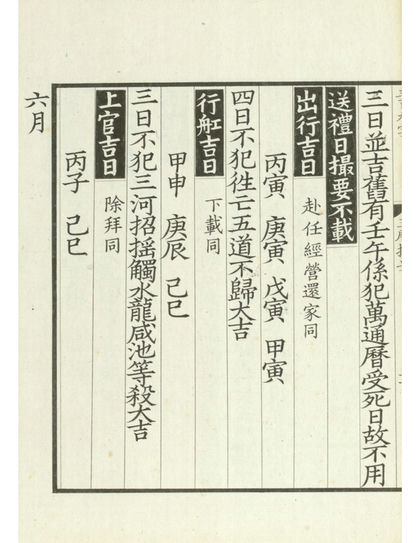 三日並吉舊有壬午係犯萬通曆受死日故不用
送禮日撮要不載
出行吉日 赴任經營還家同
丙寅 庚寅 戊寅 甲寅
四日不犯徃亡五道不歸大吉
行舡吉日 下載同
甲申 庚辰 己巳
三日不犯三河招搖觸水龍咸池等殺大吉
上官吉日 除拜同
丙子 己巳
六月